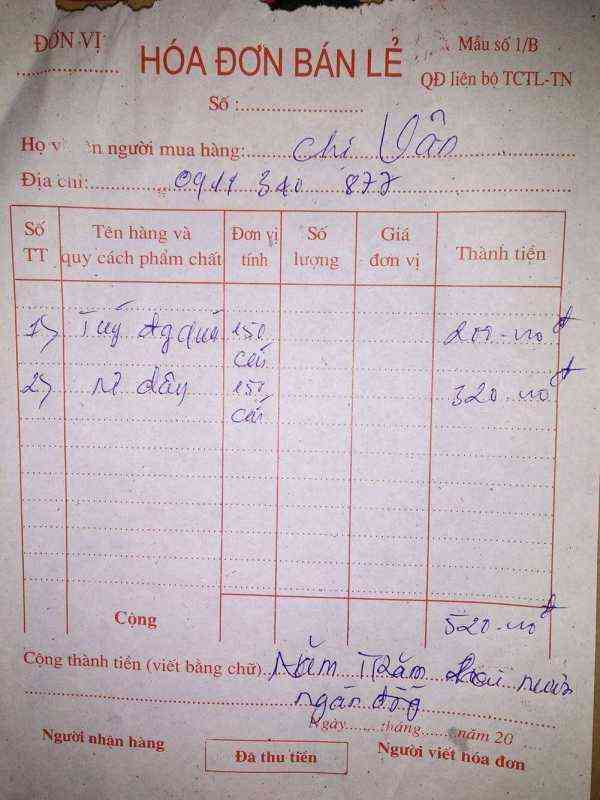 ĐƠN VỊ
HÓA ĐƠN BÁN LẺ
Mẫu số 1/B
QĐ liên bộ TCTL-TN
Số :
Họ v ên người mua hàng: Chị Vân
Địa chỉ: 0911 340 877
Số TT
Tên hàng và quy cách phẩm chất
Đơn vị tính
Số lượng
Giá đơn vị
Thành tiền
1) Túi đg quà 150 cái 200.000đ
2) dây 150 cái 320.000đ
Cộng 520.000đ
Cộng thành tiền (viết bằng chữ) Năm Trăm hai mươi
ngàn đồng
Ngày tháng năm 20
Người nhận hàng
Đã thu tiền
Người viết hóa đơn